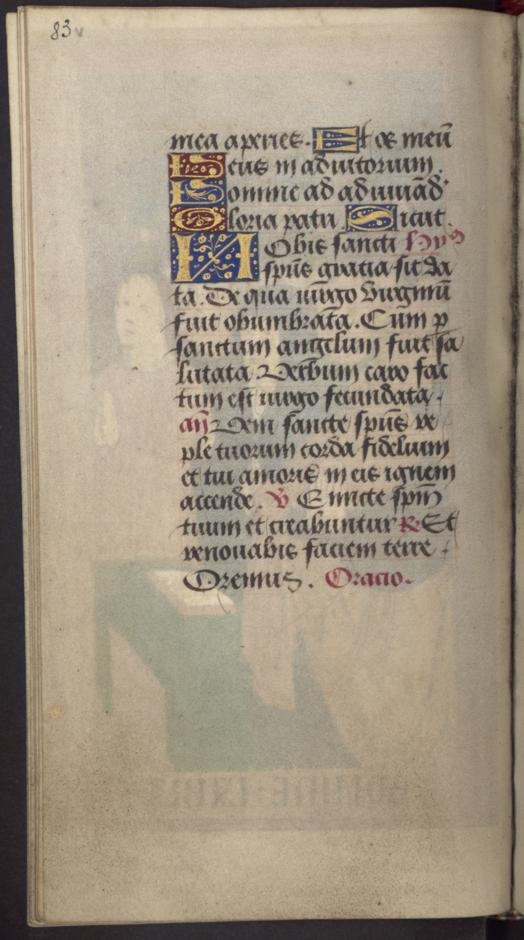 83v
mea aperies. Et os meũ
Deus in adiutorium.
Domine ad adiuuãd
Gloria patri Sicut.
Nobis sancti hyꝰ
spũs gratia sit da
ta. De qua uirgo virginũ
fuit obumbrata. Cum p
sanctum angelum fuit sa
lutata Verbum caro fac
tum est uirgo fecundata.
añ Veni sancte spũs re
ple tuorum corda fidelium
et tui amoris in eis ignem
accende. Ṽ Emicte spm̃
tuum et creabuntur R. Et
renouabis faciem terre.
Oremus. Oracio.